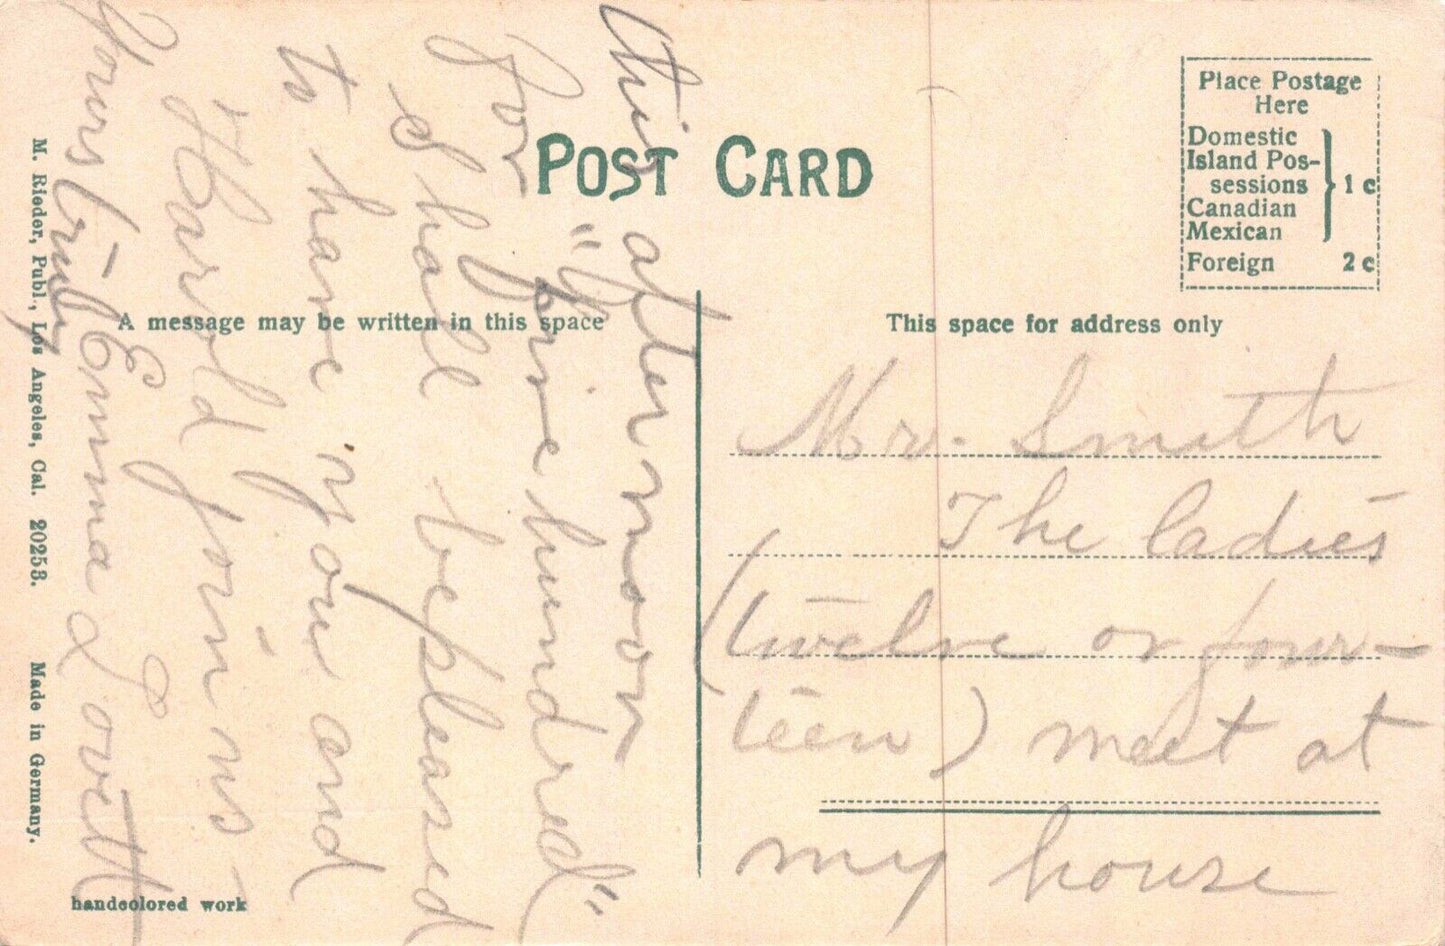 POST CARD
Place Postage
Here
Domestic
Island Pos-
sessions
Canadian
Mexican
} 1 c
Foreign 2 c
A message may be written in this space
This space for address only
Mr. Smith
The ladies
(twelve or four-
teen) meet at
my house
this afternoon
for "five hundred"
I shall be pleased
to have you and
Harold join us
Yours truly
Emma L Lovett
M. Rieder, Publ., Los Angeles, Cal. 20253. Made in Germany.
handcolored work